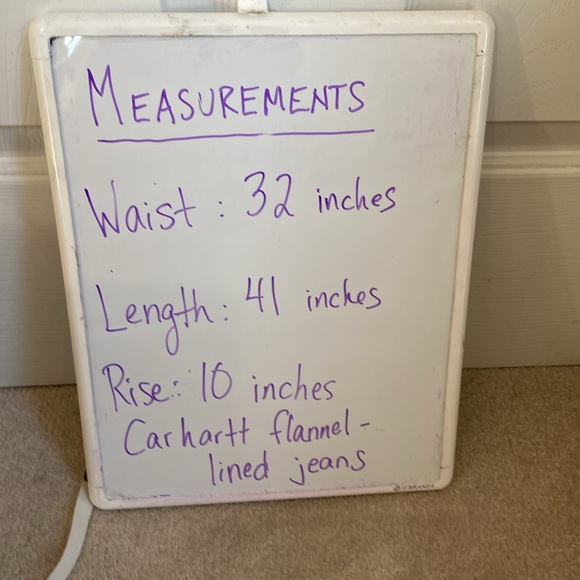 MEASUREMENTS
Waist : 32 inches
Length : 41 inches
Rise : 10 inches
Carhartt flannel-
lined jeans